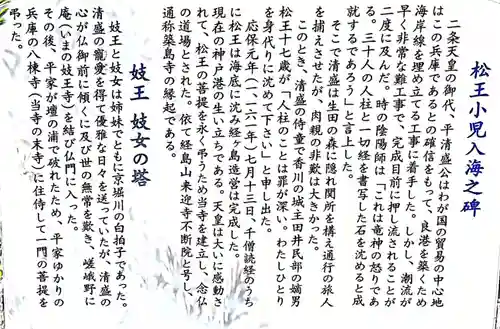 松王小児入海之碑
二条天皇の御代、平清盛公はわが国の貿易の中心地
はこの兵庫であるとの確信をもって、良港を築くため
海岸線を埋め立てる工事に着手した。しかし、潮流が
早く非常な難工事で、完成目前に押し流されることが
二度に及んだ。時の陰陽師は「これは竜神の怒りであ
る。三十人の人柱と一切経を書写した石を沈めると成
就するであろう」と言上した。
そこで清盛は生田の森に隠れ関所を構え通行の旅人
を捕えさせたが、肉親の非歎は大きかった。
このとき、清盛の侍童で香川の城主田井民部の嫡男
松王十七歳が「人柱のことは罪が深い。わたしひとり
を身代りに沈めて下さい」と申し出た。
応保元年(一一六一年)七月十三日、千僧読経のうち
に松王は海底に沈み経ヶ島造営は完成した。
現在の神戸港の生い立ちである。天皇は大いに感動さ
れて、松王の菩提を永く弔うため当寺を建立し、念仏
の道場とされた。依て経島山来迎寺不断院と号し、
通称築島寺の縁起である。
妓王 妓女の塔
妓王と妓女は姉妹でともに京堀川の白拍子であった。
清盛の寵愛を得て優雅な日々を送っていたが、清盛の
心が仏御前に傾くに及び世の無常を歎き、嵯峨野に
庵(いまの妓王寺)を結び仏門に入った。
その後、平家が壇の浦で破れたため、平家ゆかりの
兵庫の八棟寺(当寺の末寺)に住侍して一門の菩提を
弔った。